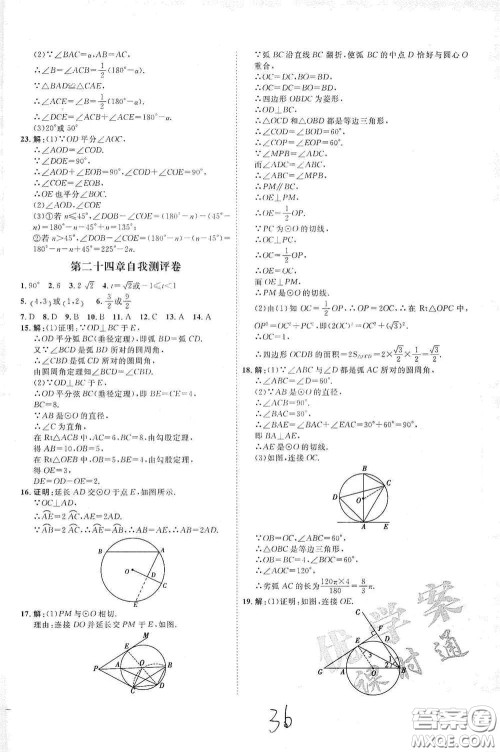 (2)∵∠BAC=α,AB=AC,
∴∠ABC=∠ACB=1/2(180°-α).
∴△BAD≌△CAE,
∴∠ACE=∠B=1/2(180°-α).
∴∠DCE=∠ACB+∠ACE=180°-α.
(3)20°或50°
23.解:(1)∵OD平分∠AOC,
∴∠AOD=∠COD.
∵∠DOE=90°,
∴∠AOD+∠EOB=∠COD+∠COE=90°.
∴∠EOB=∠COE,
即OE平分∠BOC.
(2)∠AOE
(3)①若n≤45°,
∠BOD-∠COE=(180°-n)-(45°-n)=180°-n-45°+n=135°;
②若n>45°,∠BOD-∠COE=(180°-n)-(n-45°)=180°-n-n+45°=225°-2n.
第二十四章自我测评卷
1.90° 2.6 3.2√2 4.t=√2或-1≤t<1
5.(4,3)或(1,2) 6.3/2或9/2
7.D 8.D 9.B 10.A 11.C 12.A 13.C 14.A
15.解:(1)证明:∵OD⊥BC于E,
∴OD平分弧BC(垂径定理).
又∵∠BCD是弧BD所对的圆周角,
∠CBD是弧CD所对的圆周角,
由圆周角定理可得∠BCD=∠CBD.
(2)∵OD⊥BC于E,
∴OD平分弦BC(垂径定理),∴BE=CE=4,
BC=8.
∵AB是⊙O的直径,
∴∠C为直角,
在Rt△ACB中,AC=6,BC=8,由勾股定理,
得AB=10,OB=5,
在Rt△OEB中,OB=5,BE=4,由勾股定理,
得OE=3,DE=OD-OE=2.
16.证明:延长AD交⊙O于点E,如图所示.
∵OC⊥AD,
∴AE=2AC,AE=2AD.
∵AB=2AC,∴AE=AB,∴AB=AE,∴AB=2AD.
B
A
O
D
C
E
17.解:(1)PM与⊙O相切.
理由:连接DO并延长交PM于E,如图.
M
E
P
A
O
B
C
D
∵弧BC沿直线BC翻折,使弧BC的中点D恰好与圆心O
重合,
∴OC=DC,BO=BD,
∴OC=DC=BO=BD,
∴四边形OBDC为菱形,
∴OD⊥BC,
∴△OCD和△OBD都是等边三角形,
∴∠COD=∠BOD=60°,
∴∠COP=∠EOP=60°,
∵∠MPB=∠ADC,
而∠ADC=∠ABC,
∴∠ABC=∠MPB,
∴PM∥BC,
∴OE⊥PM,
∴OE=1/2OP,
∵PC为⊙O的切线,
∴OC⊥PC,
∴OC=1/2OP,
∴OE=OC,
而OE⊥PM,
∴PM是⊙O的切线.
(2)由(1)知OC=1/2OP,∴在Rt△OPC中,
OP²=OC²+PC²,即(2OC)²=OC²+(√3)².
∴OC=1.
∴四边形OCDB的面积=2S△OCD=2×√3/4×1²=√3/2.
18.解:(1)∵∠ABC与∠D都是弧AC所对的圆周角
∴∠ABC=∠D=60°.
(2)∵AB是⊙O的直径,
∴∠ACB=90°,
∴∠BAC=30°,
∴∠BAE=∠BAC+∠EAC=30°+60°=90°,
即BA⊥AE,
∴AE是⊙O的切线.
(3)如图,连接OC,
B
C
O
D
A
E
∵OB=OC,∠ABC=60°,
∴△OBC是等边三角形,
∴OB=BC=4,∠BOC=60°,
∴∠AOC=120°,
∴劣弧AC的长度为120π×4/180=8/3π.
19.解:(1)证明:如图,连接OE.
F
C
E
3
1
2
D
O
H
A
B
36
优学案
课时通
答案圈
MXQE.COM